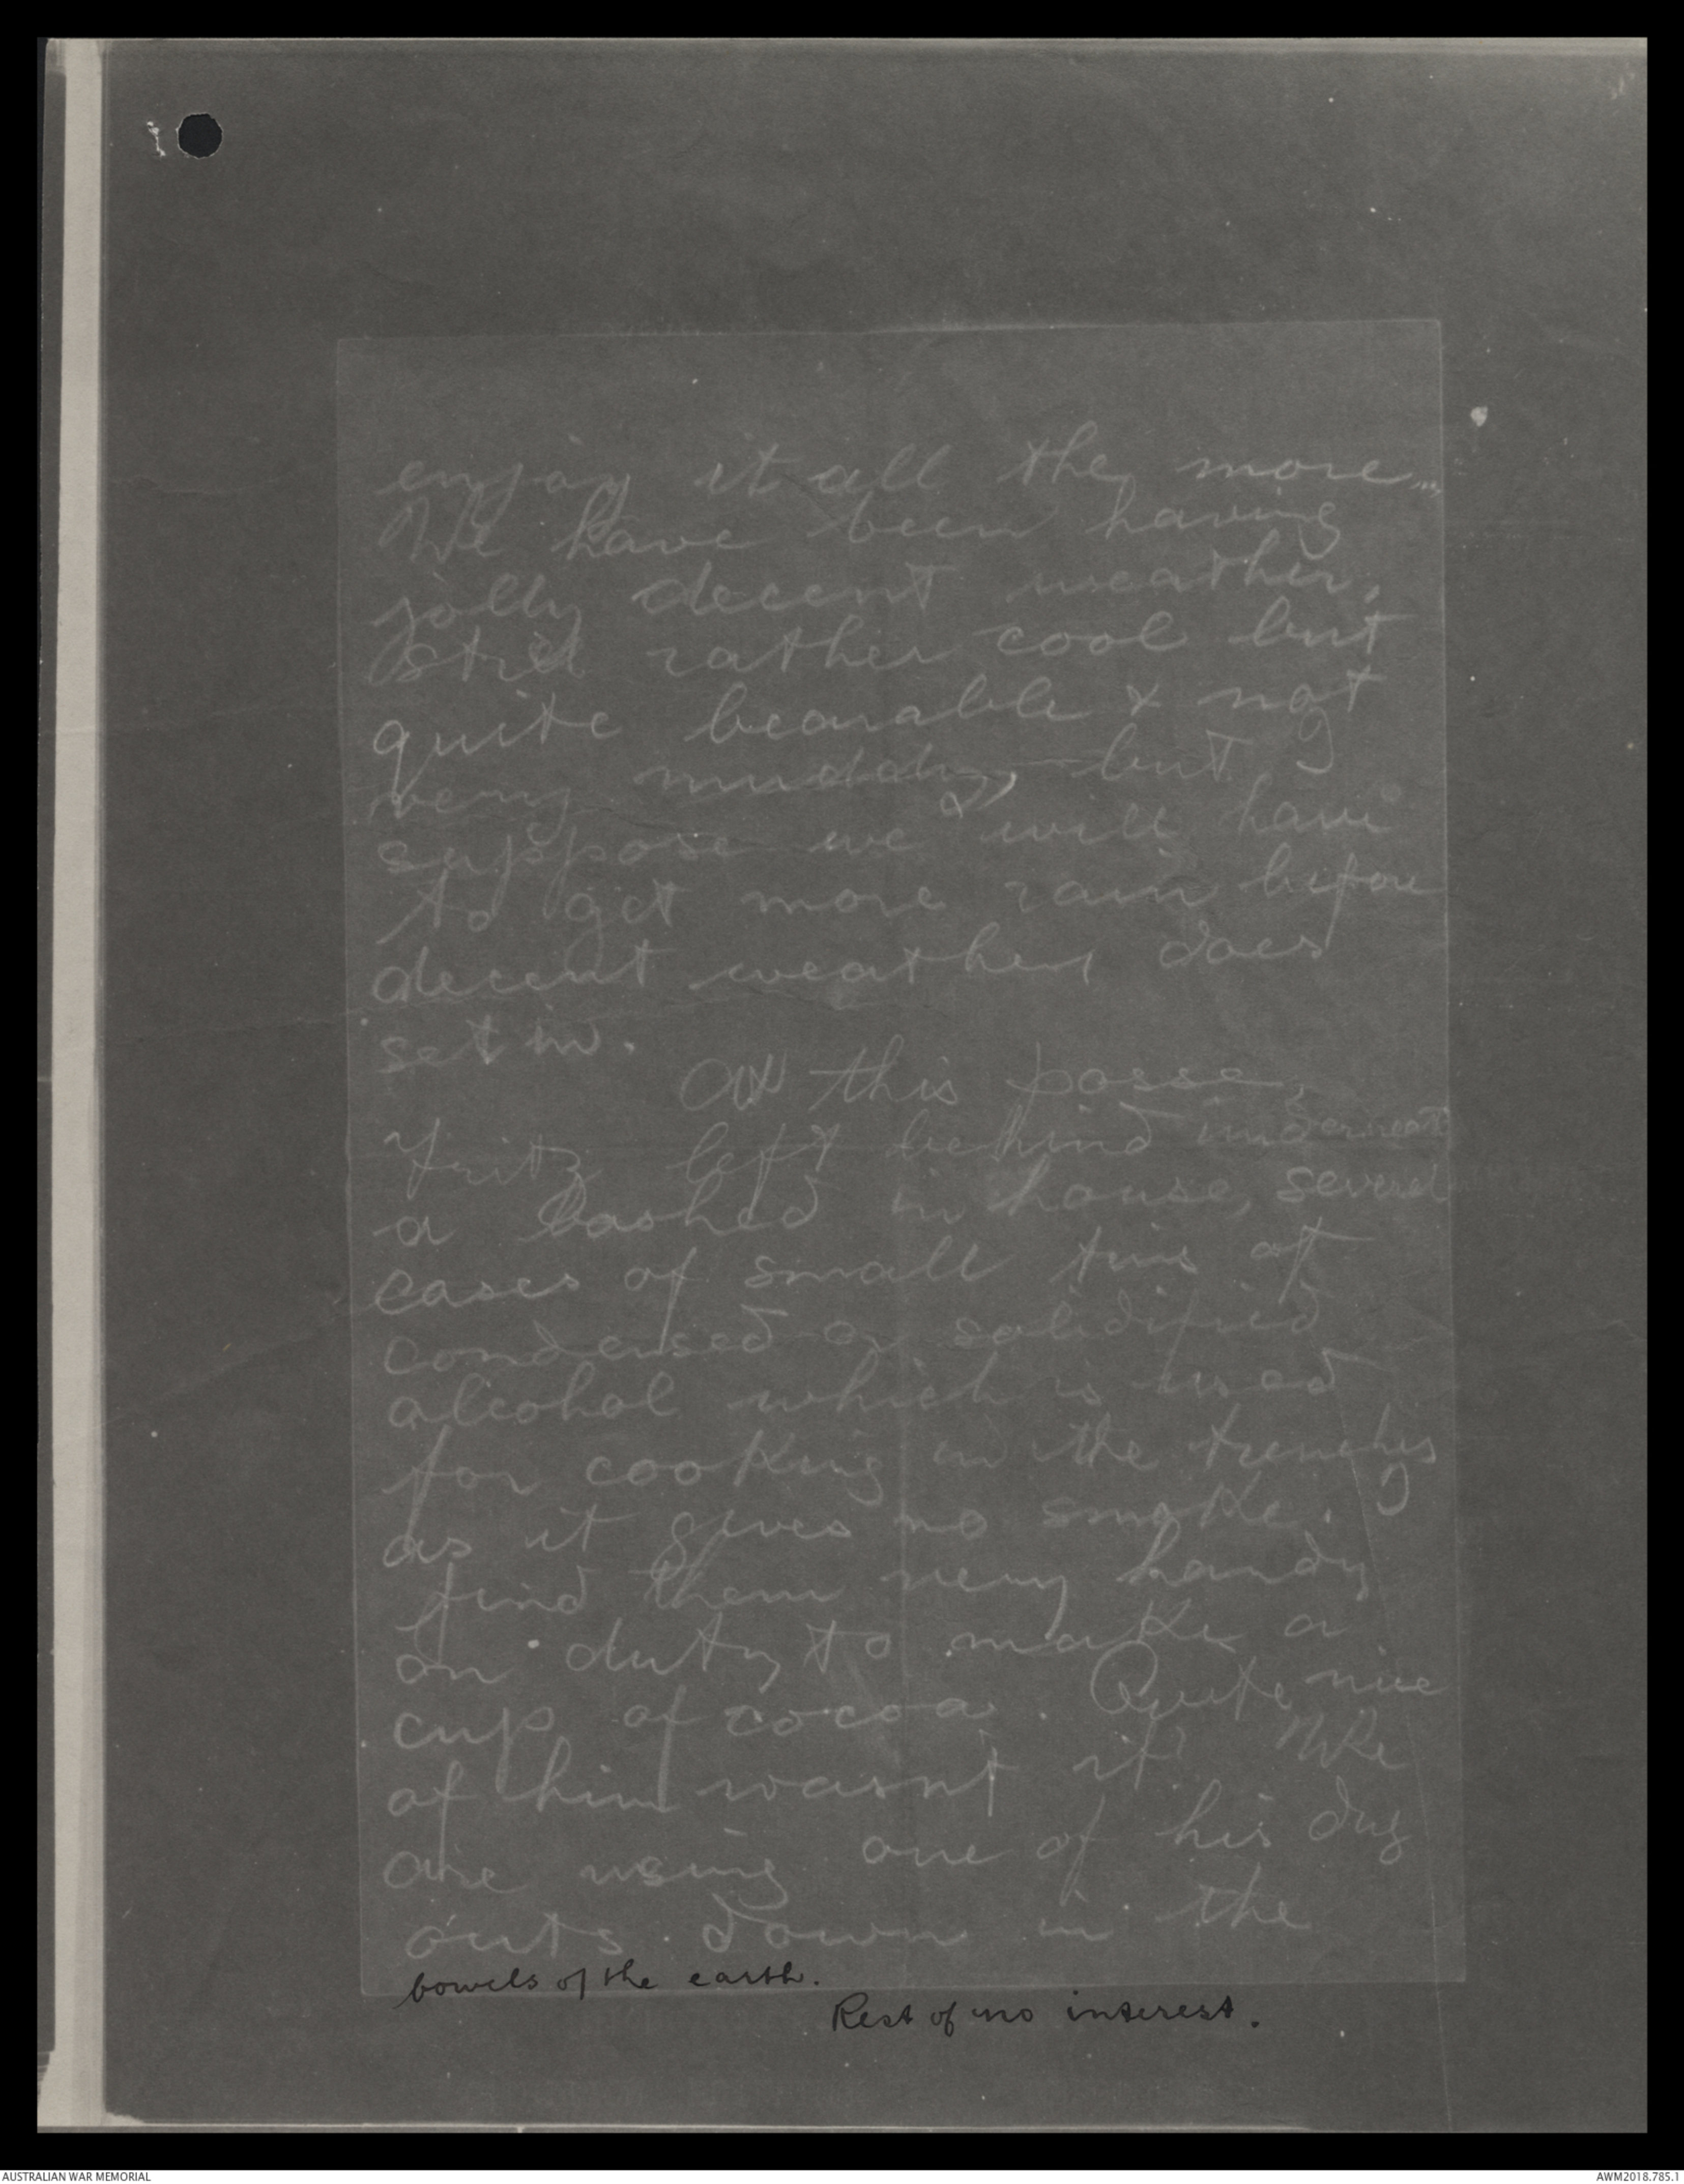 enjoy it all the more.
We have been having
jolly decent weather,
still rather cool but
quite bearable & not
very muddy, but I
suppose we will have
to get more rain before
decent weather, does
set in.
At this posse,
Fritz left behind underneath
a bashed in house, several
cases of small tins of
condensed or solidified
alcohol which is used
for cooking in the trenches
as it gives no smoke. I
find them very handy
on duty to make a
cup of cocoa. Quite nice
of him wasnt it. We
are using one of his dug
outs down in the
bowels of the earth.
Rest of no interest.
AUSTRALIAN WAR MEMORIAL
AWM2018.785.1